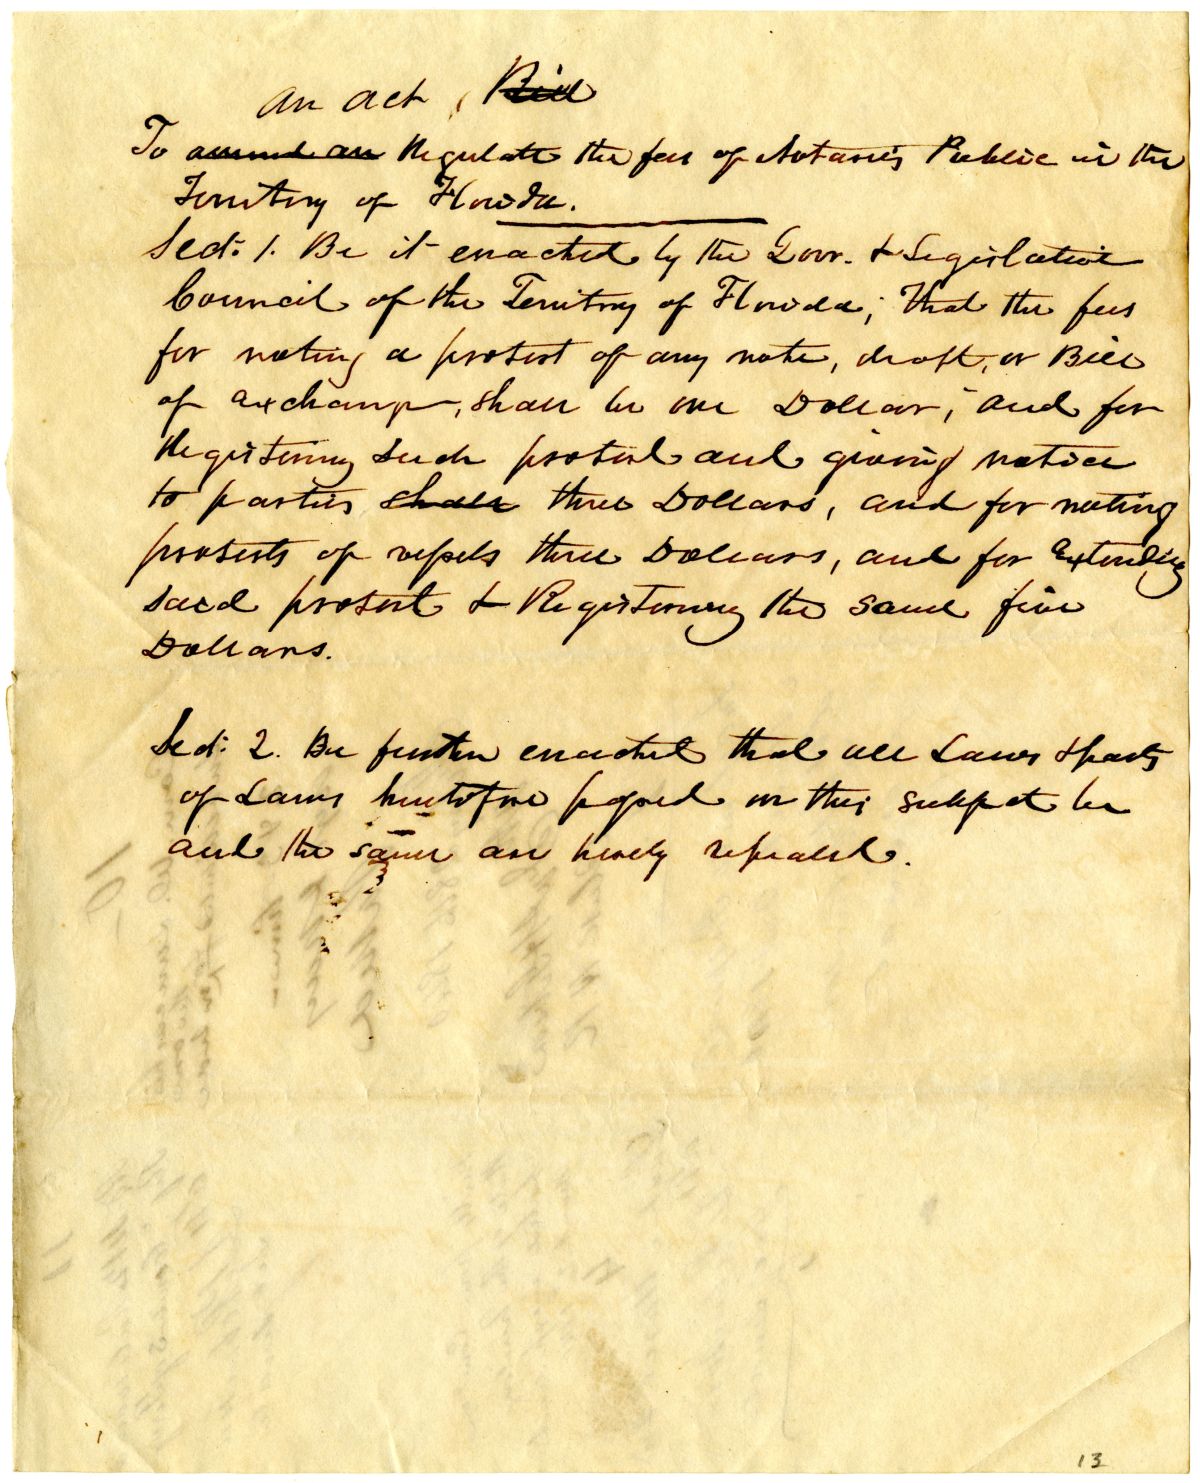 An act, Bill
To amend an Regulate the fees of Notaries Public in the
Territory of Florida.
Sect: 1. Be it enacted by the Govr. & Legislative
Council of the Territory of Florida; That the fees
for noting a protest of any note, draft, or Bill
of exchange, shall be one Dollar; and for
Registering such protest and giving notice
to parties shall three Dollars, and for noting
protests of vessels three Dollars, and for extending
said protest & Registering the same five
Dollars.
Sect: 2. Be further enacted that all Laws & parts
of Laws heretofore passed on this subject be
and the same are hereby repealed.
13